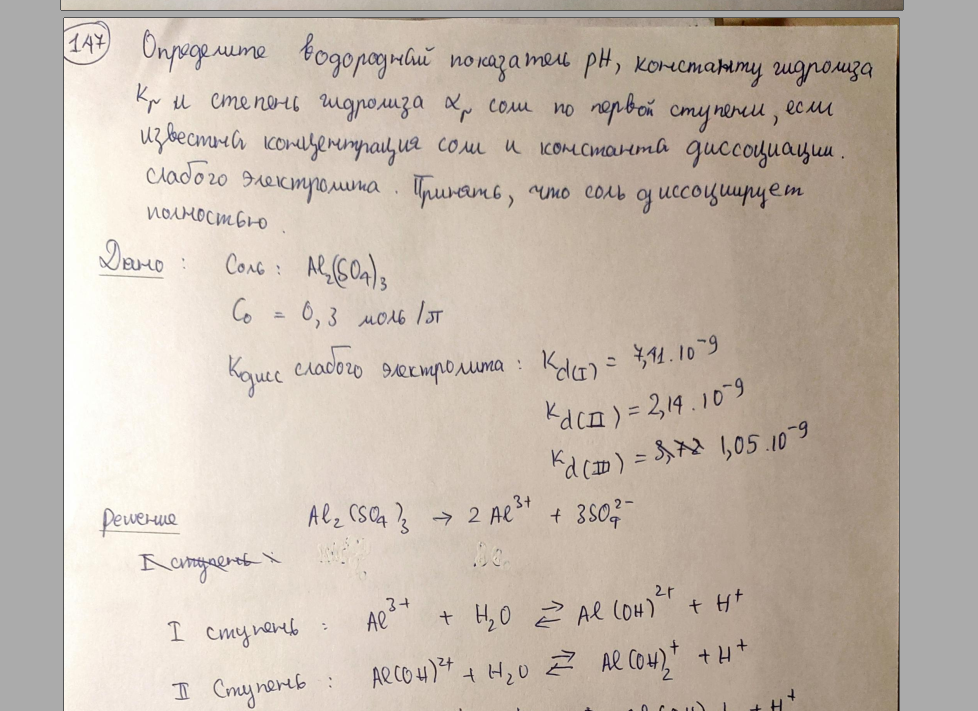 147
Определите водородный показатель pH, константу гидролиза
Kг и степень гидролиза αг соли по первой ступени, если
известна концентрация соли и константа диссоциации
слабого электролита. Принять, что соль диссоциирует
полностью.
Дано: Соль: Al₂(SO₄)₃
C₀ = 0,3 моль/л
Kдисс слабого электролита: Kd(I) = 7,41·10⁻⁹
Kd(II) = 2,14·10⁻⁹
Kd(III) = 1,05·10⁻⁹
Решение Al₂(SO₄)₃ → 2Al³⁺ + 3SO₄²⁻
I ступень:
I ступень: Al³⁺ + H₂O ⇄ Al(OH)²⁺ + H⁺
II Ступень: Al(OH)²⁺ + H₂O ⇄ Al(OH)₂⁺ + H⁺